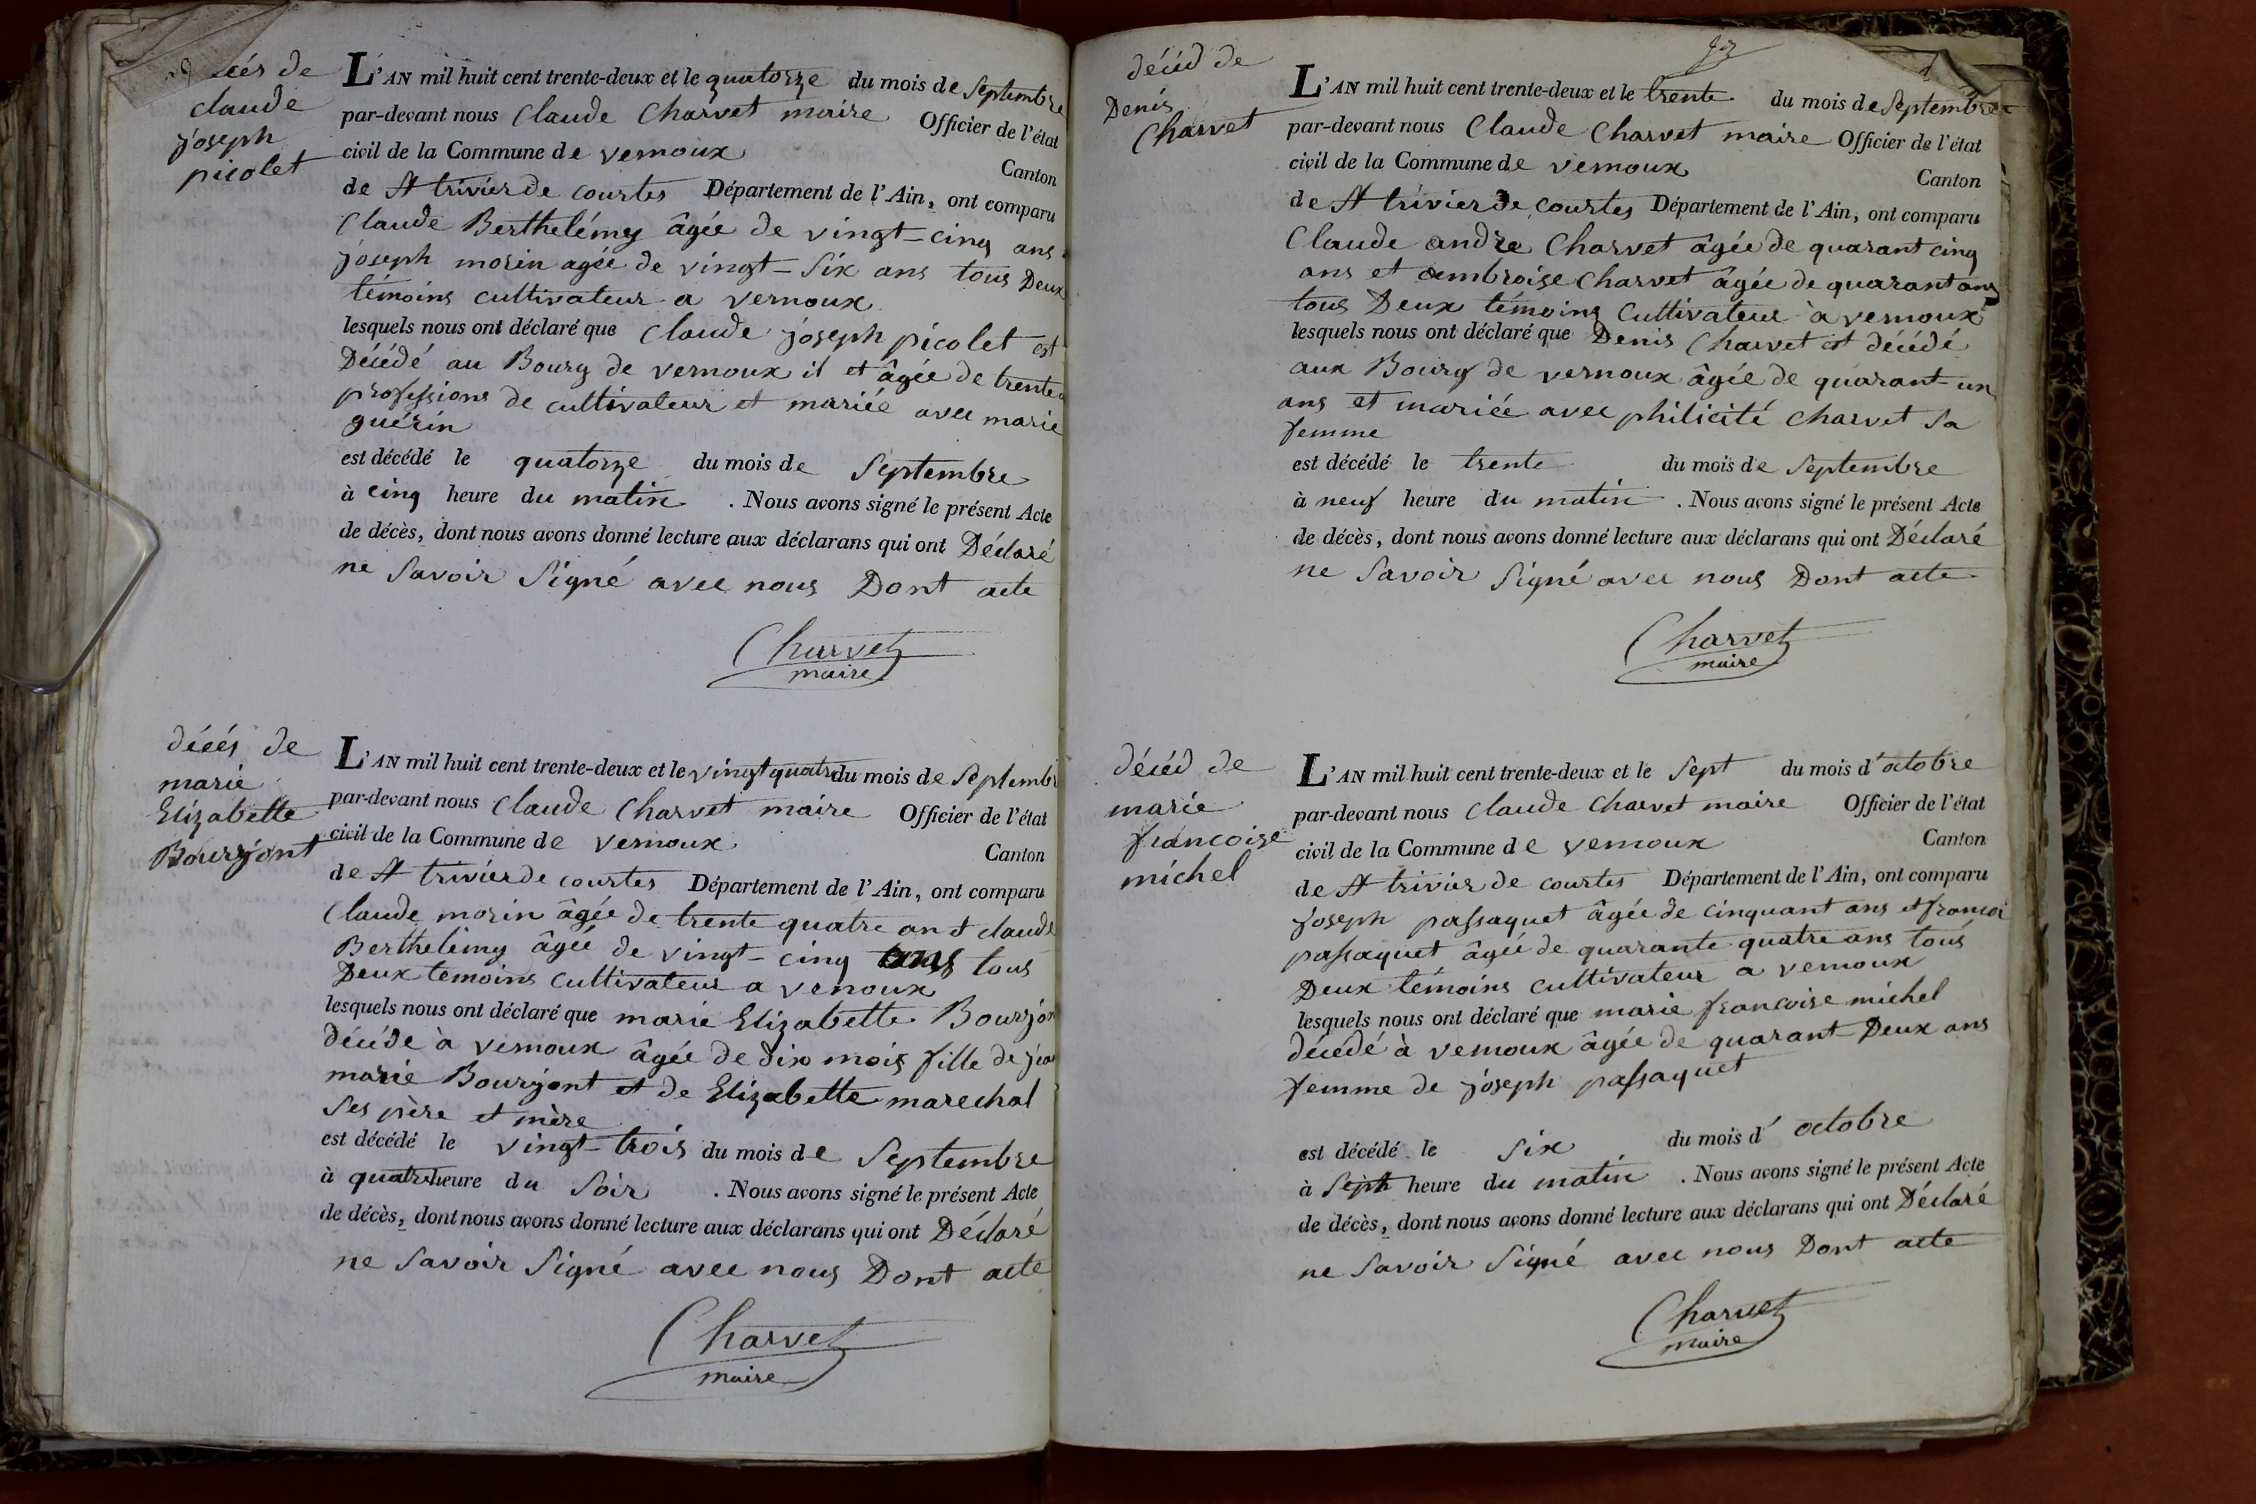 décés de
claude
joseph
picolet
L'AN mil huit cent trente-deux et le quatorze du mois de Septembre
par-devant nous Claude Charvet maire Officier de l'état
civil de la Commune de vernoux Canton
de St trivier de courtes Département de l'Ain, ont comparu
Claude Berthelémy âgée de vingt-cinq ans
joseph morin agée de vingt-Six ans tous Deux
témoins cultivateur a vernoux
lesquels nous ont déclaré que Claude joseph picolet est
Décédé au Bourg de vernoux il et âgée de trente
professions de cultivateur et mariée avec marie
guérin
est décédé le quatorze du mois de Septembre
à cinq heure du matin . Nous avons signé le présent Acte
de décès, dont nous avons donné lecture aux déclarans qui ont Déclaré
ne Savoir Signé avec nous Dont acte
Charvet
maire
décés de
marie
Elizabette
Bourjont
L'AN mil huit cent trente-deux et le vingt quatre du mois de Septembr
par-devant nous Claude Charvet maire Officier de l'état
civil de la Commune de vernoux Canton
de St trivier de courtes Département de l'Ain, ont comparu
Claude morin âgée de trente quatre an et claude
Berthelémy âgée de vingt-cinq ans tous
Deux temoins cultivateur a vernoux
lesquels nous ont déclaré que marie Elizabette Bourjon
décéde à vernoux âgée de dix mois fille de jean
marie Bourjont et de Elizabette marechal
Ses père et mère
est décédé le vingt-trois du mois de Septembre
à quatre heure du Soir . Nous avons signé le présent Acte
de décès, dont nous avons donné lecture aux déclarans qui ont Déclaré
ne Savoir Signé avec nous Dont acte
Charvet
maire
décéd de
Denis
Charvet
L'AN mil huit cent trente-deux et le trente du mois de Septembre
par-devant nous Claude Charvet maire Officier de l'état
civil de la Commune de vernoux Canton
de St trivier de courtes Département de l'Ain, ont comparu
Claude andre Charvet âgée de quarant cinq
ans et ambroise Charvet âgée de quarant ans
tous Deux témoins Cultivateur à vernoux
lesquels nous ont déclaré que Denis Charvet et décédé
aux Bourg de vernoux âgée de quarant-un
ans et mariée avec philicité Charvet Sa
femme
est décédé le trente du mois de Septembre
à neuf heure du matin . Nous avons signé le présent Acte
de décès, dont nous avons donné lecture aux déclarans qui ont Déclaré
ne Savoir Signé avec nous Dont acte
Charvet
maire
décéd de
marie
francoise
michel
L'AN mil huit cent trente-deux et le Sept du mois d'octobre
par-devant nous Claude Charvet maire Officier de l'état
civil de la Commune de vernoux Canton
de St trivier de courtes Département de l'Ain, ont comparu
joseph passaquet âgée de cinquant ans et francoi
passaquet âgée de quarante quatre ans tous
Deux témoins cultivateur a vernoux
lesquels nous ont déclaré que marie francoise michel
décédé à vernoux âgée de quarant-Deux ans
femme de joseph passaquet
est décédé le Six du mois d'octobre
à Sept heure du matin . Nous avons signé le présent Acte
de décès, dont nous avons donné lecture aux déclarans qui ont Déclaré
ne Savoir Signé avec nous Dont acte
Charvet
maire